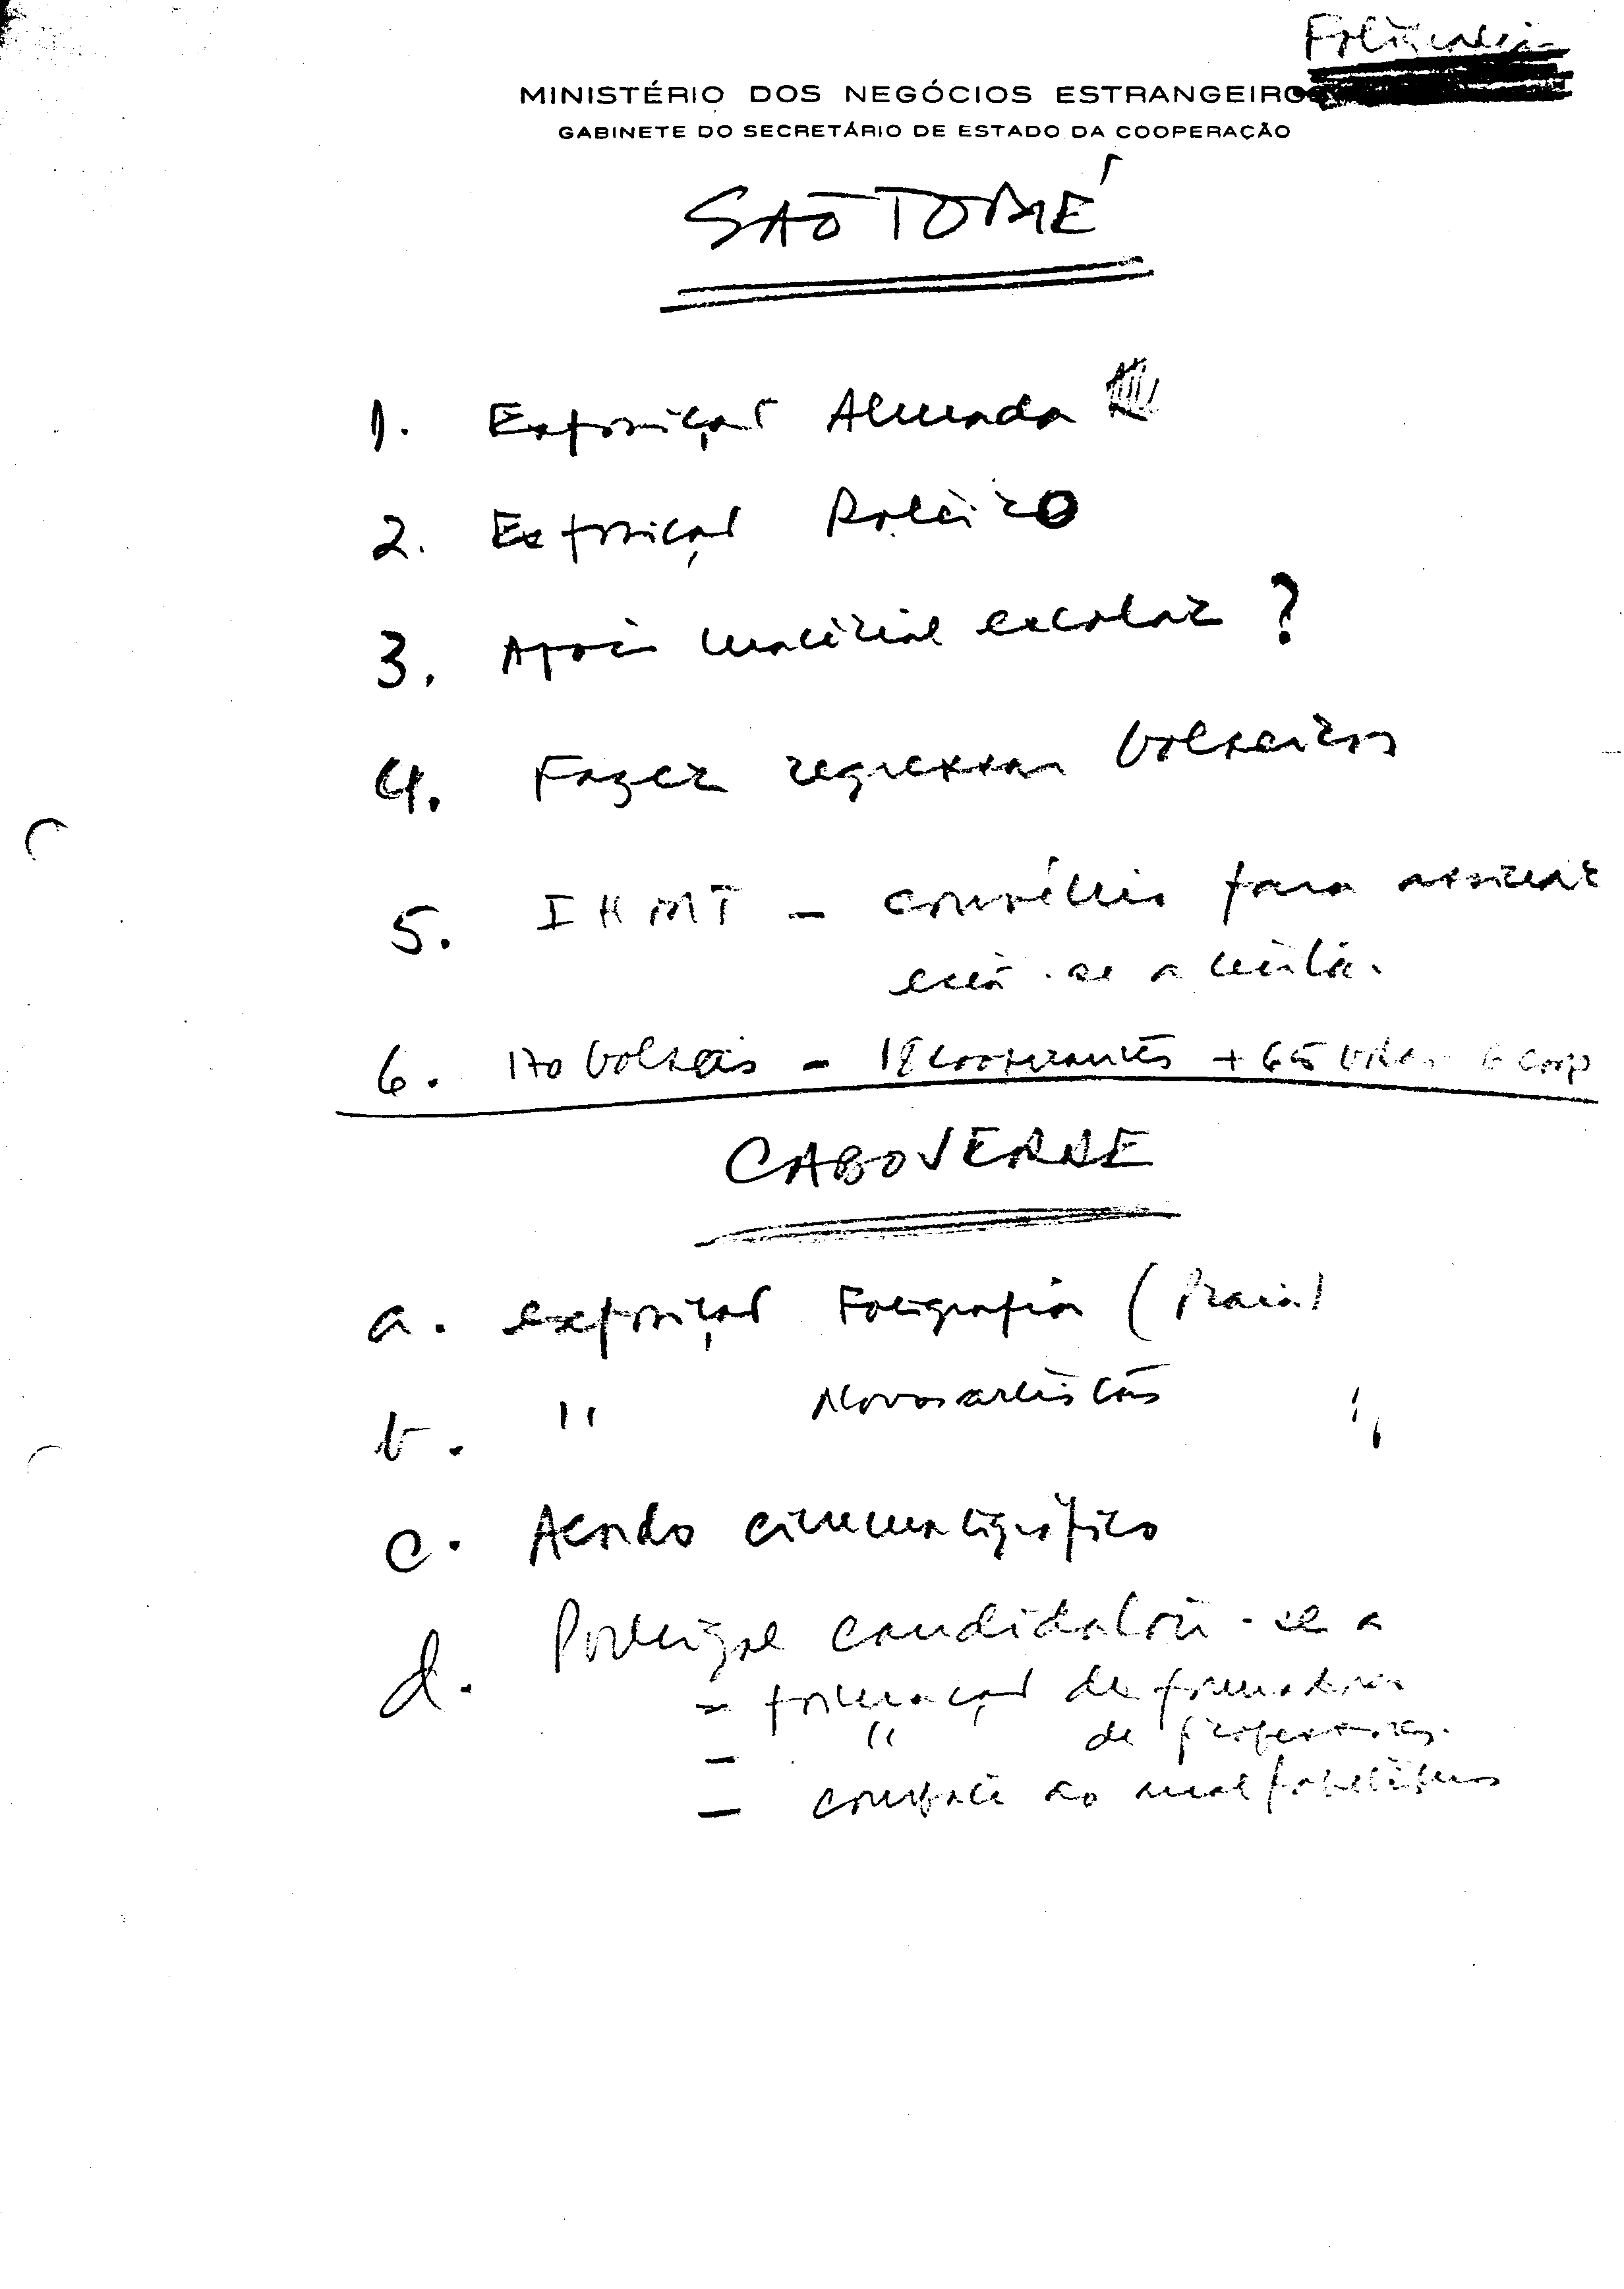 Fotocópia
MINISTÉRIO DOS NEGÓCIOS ESTRANGEIROS
GABINETE DO SECRETÁRIO DE ESTADO DA COOPERAÇÃO
SÃO TOMÉ
1. Exposição Almada
2. Exposição Roteiro
3. Apoio material escolar ?
4. Fazer regressar bolseiros
5. IHMT - convénio para assinar
está-se a
6. 170 bolsas - 18 cooperantes + 65 6 coop
CABO VERDE
a. exposição Fotografia (Praia)
b. " Novos artistas "
c. Acordo cinematográfico
d. Portugal candidatou-se a
- formação de formadores
- " de professores.
- combate ao analfabetismo